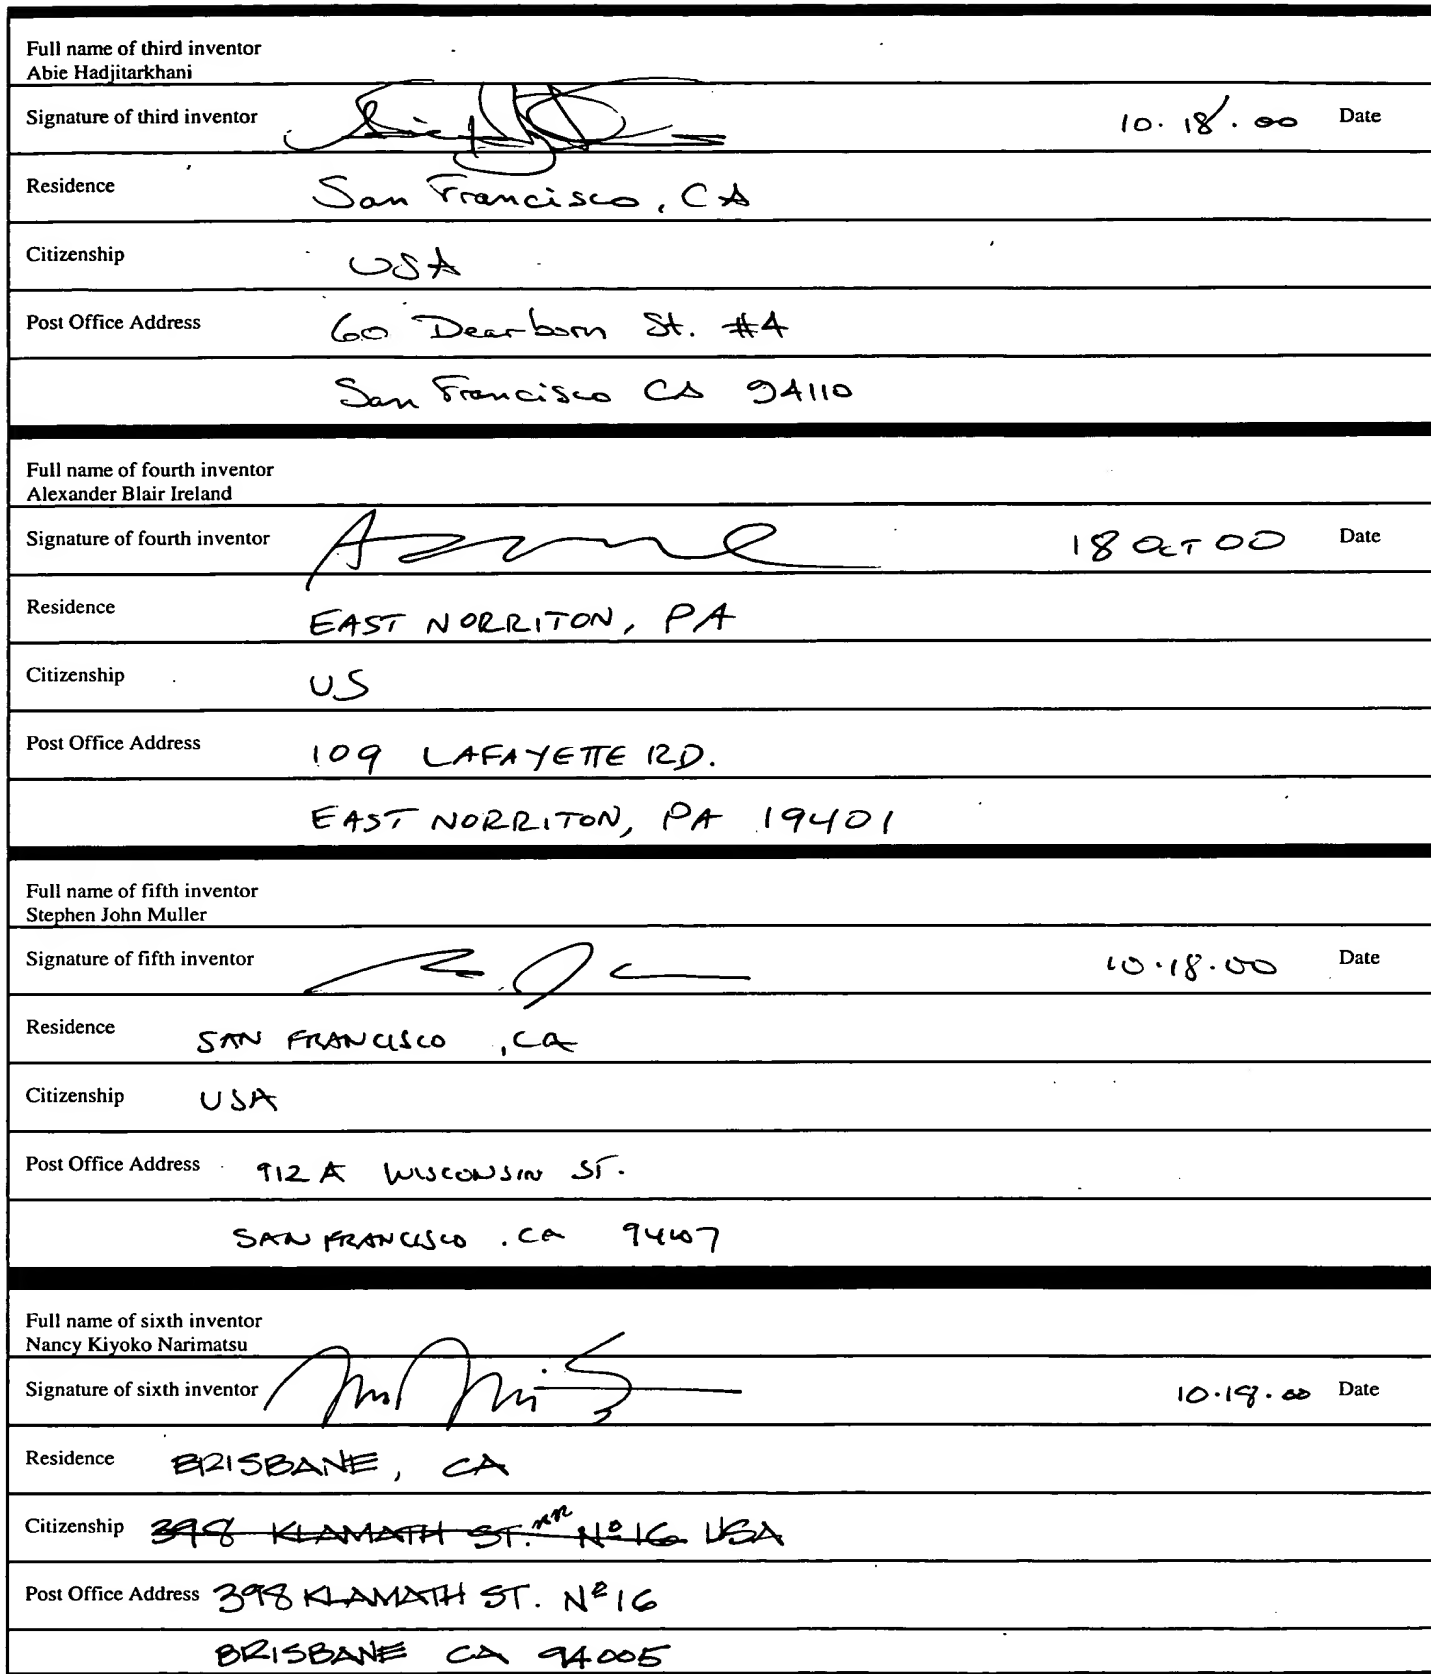 Full name of third inventor
Abie Hadjitarkhani
Signature of third inventor 10.18.00 Date
Residence San Francisco, CA
Citizenship USA
Post Office Address 60 Dearborn St. #4
San Francisco CA 94110
Full name of fourth inventor
Alexander Blair Ireland
Signature of fourth inventor 18 OCT 00 Date
Residence EAST NORRITON, PA
Citizenship US
Post Office Address 109 LAFAYETTE RD.
EAST NORRITON, PA 19401
Full name of fifth inventor
Stephen John Muller
Signature of fifth inventor 10.18.00 Date
Residence SAN FRANCISCO, CA
Citizenship USA
Post Office Address 912 A WISCONSIN ST.
SAN FRANCISCO. CA 94107
Full name of sixth inventor
Nancy Kiyoko Narimatsu
Signature of sixth inventor 10.18.00 Date
Residence BRISBANE, CA
Citizenship 398 KLAMATH ST. Nº 16 USA
Post Office Address 398 KLAMATH ST. Nº 16
BRISBANE CA 94005